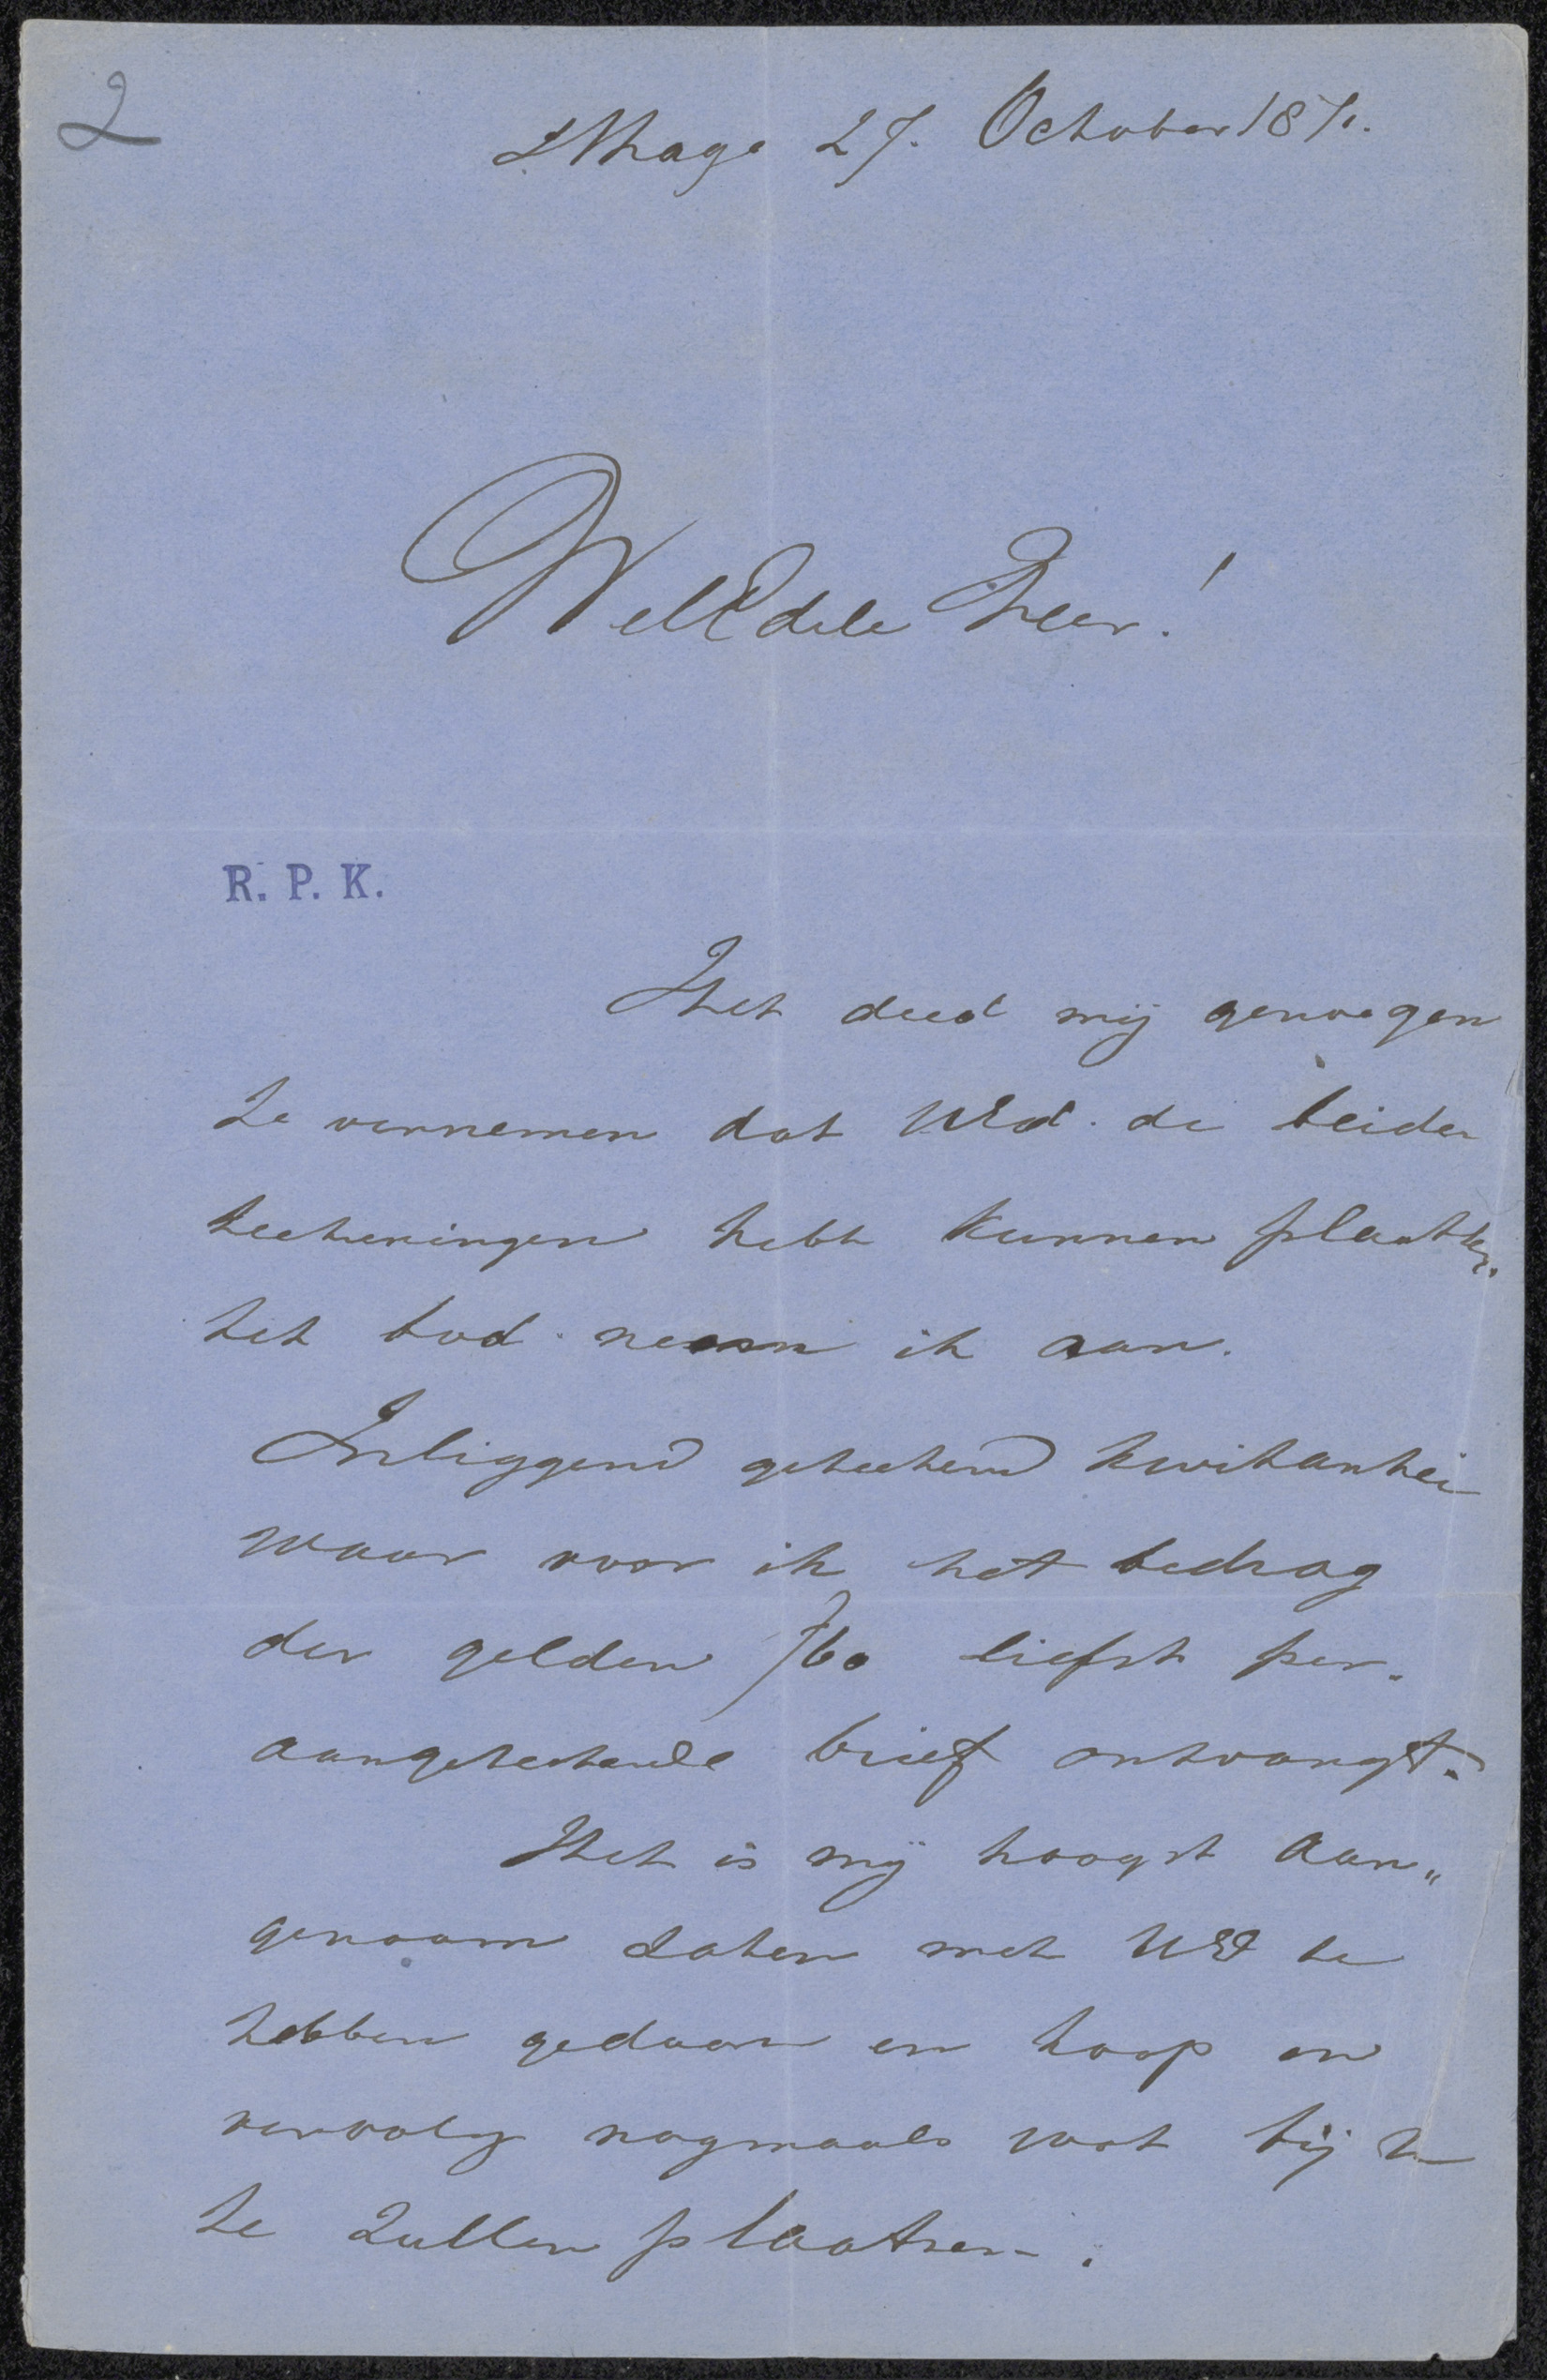 2
s'Hage 27. October 1871.
WelEdele Heer!
R. P. K.
Het deed mij genoegen
te vernemen dat UEd. de beide
teekeningen hebt kunnen plaatsen.
het bod neem ik aan.
Inliggend geteekend kwitantie
waar voor ik het bedrag
der gelden f 60 liefst per.
aangeteekende brief ontvangt.
Het is mij hoogst aan„
genaam zaken met UEd te
hebben gedaan en hoop in
vervolg nogmaals wat bij U
te zullen plaatsen.